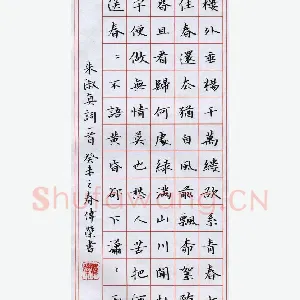 樓外垂楊千萬縷欲系青春
住春還去猶自風前飄柳絮隨
春且看歸何處綠滿山川聞
字便做無情莫也愁人苦把
送春〻不語黃昏却下瀟〻
朱淑真詞一首 癸未之春偉榮書
Shufawang.CN